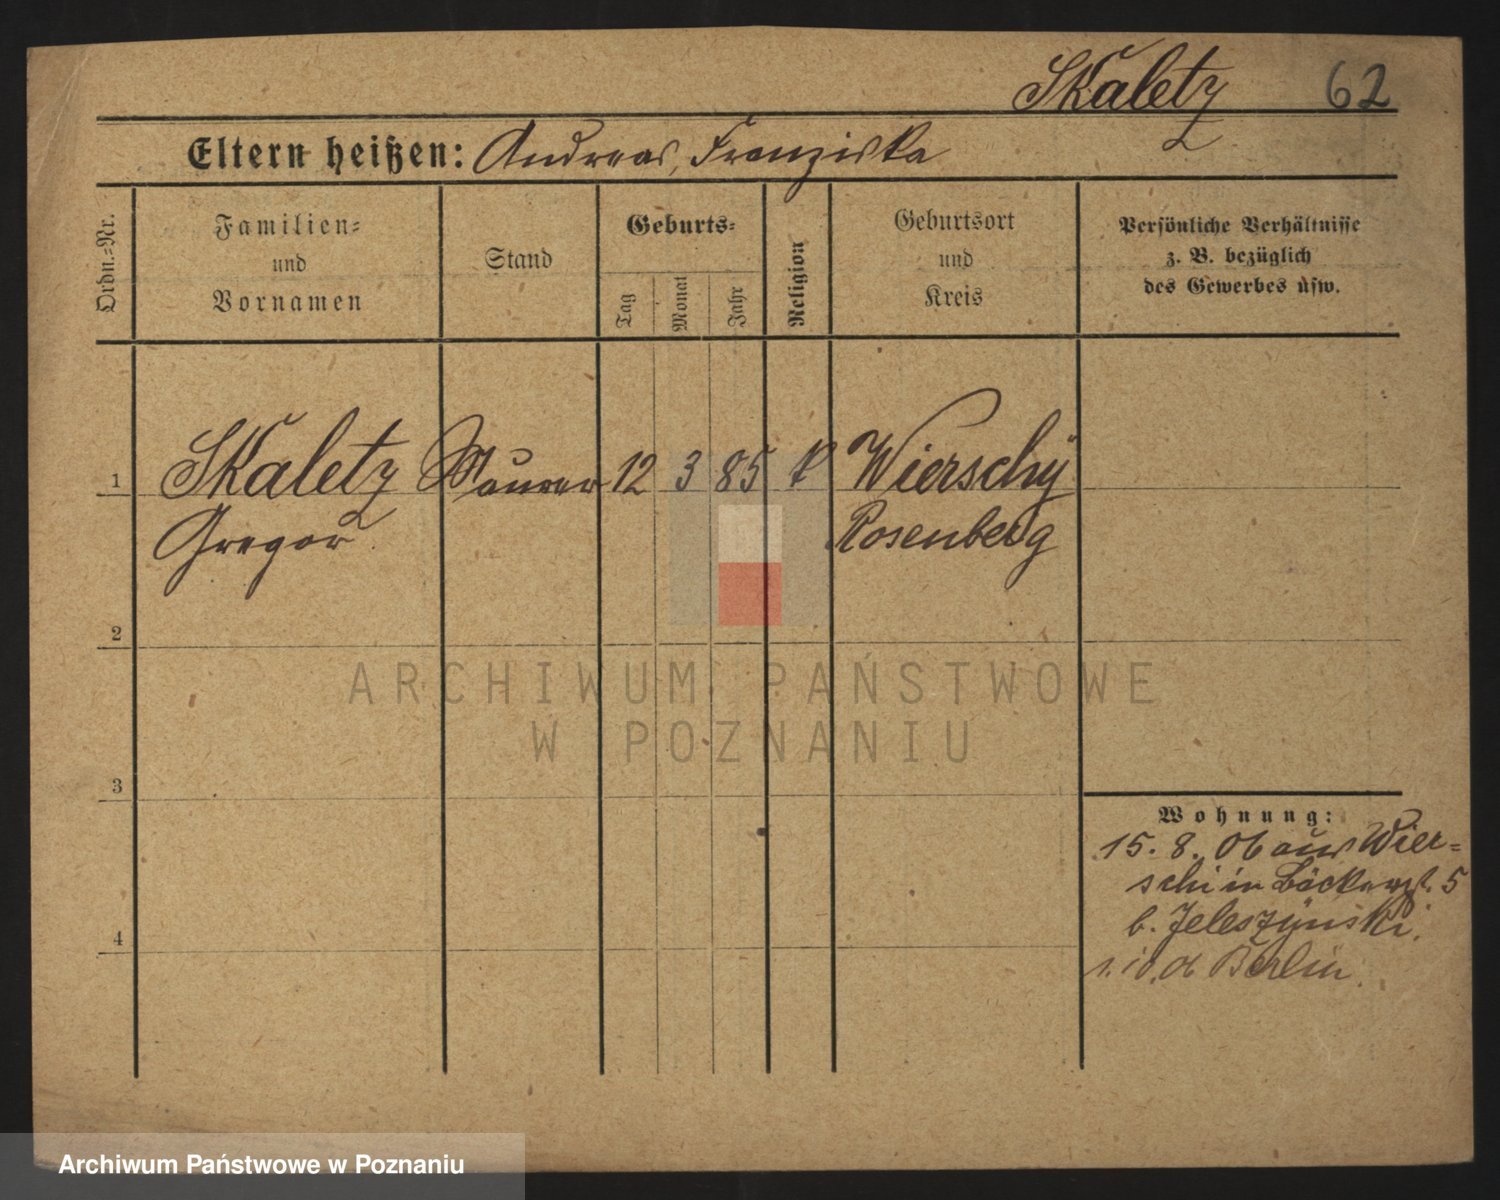 Skaletz 62
Eltern heißen: Andreas, Franziska
Ordn.-Nr.
Familien-
und
Vornamen
Stand
Geburts-
Tag
Monat
Jahr
Religion
Geburtsort
und
Kreis
Persönliche Verhältnisse
z. B. bezüglich
des Gewerbes usw.
1 Skaletz Maurer 12 3 85 k Wierschy
Gregor Rosenberg
2
3
4
Wohnung:
15. 8. 06 aus Wier-
schi in Bäckerst. 5
b. Jeleszynski.
1. 10. 06 Berlin.
ARCHIWUM PAŃSTWOWE
W POZNANIU
Archiwum Państwowe w Poznaniu